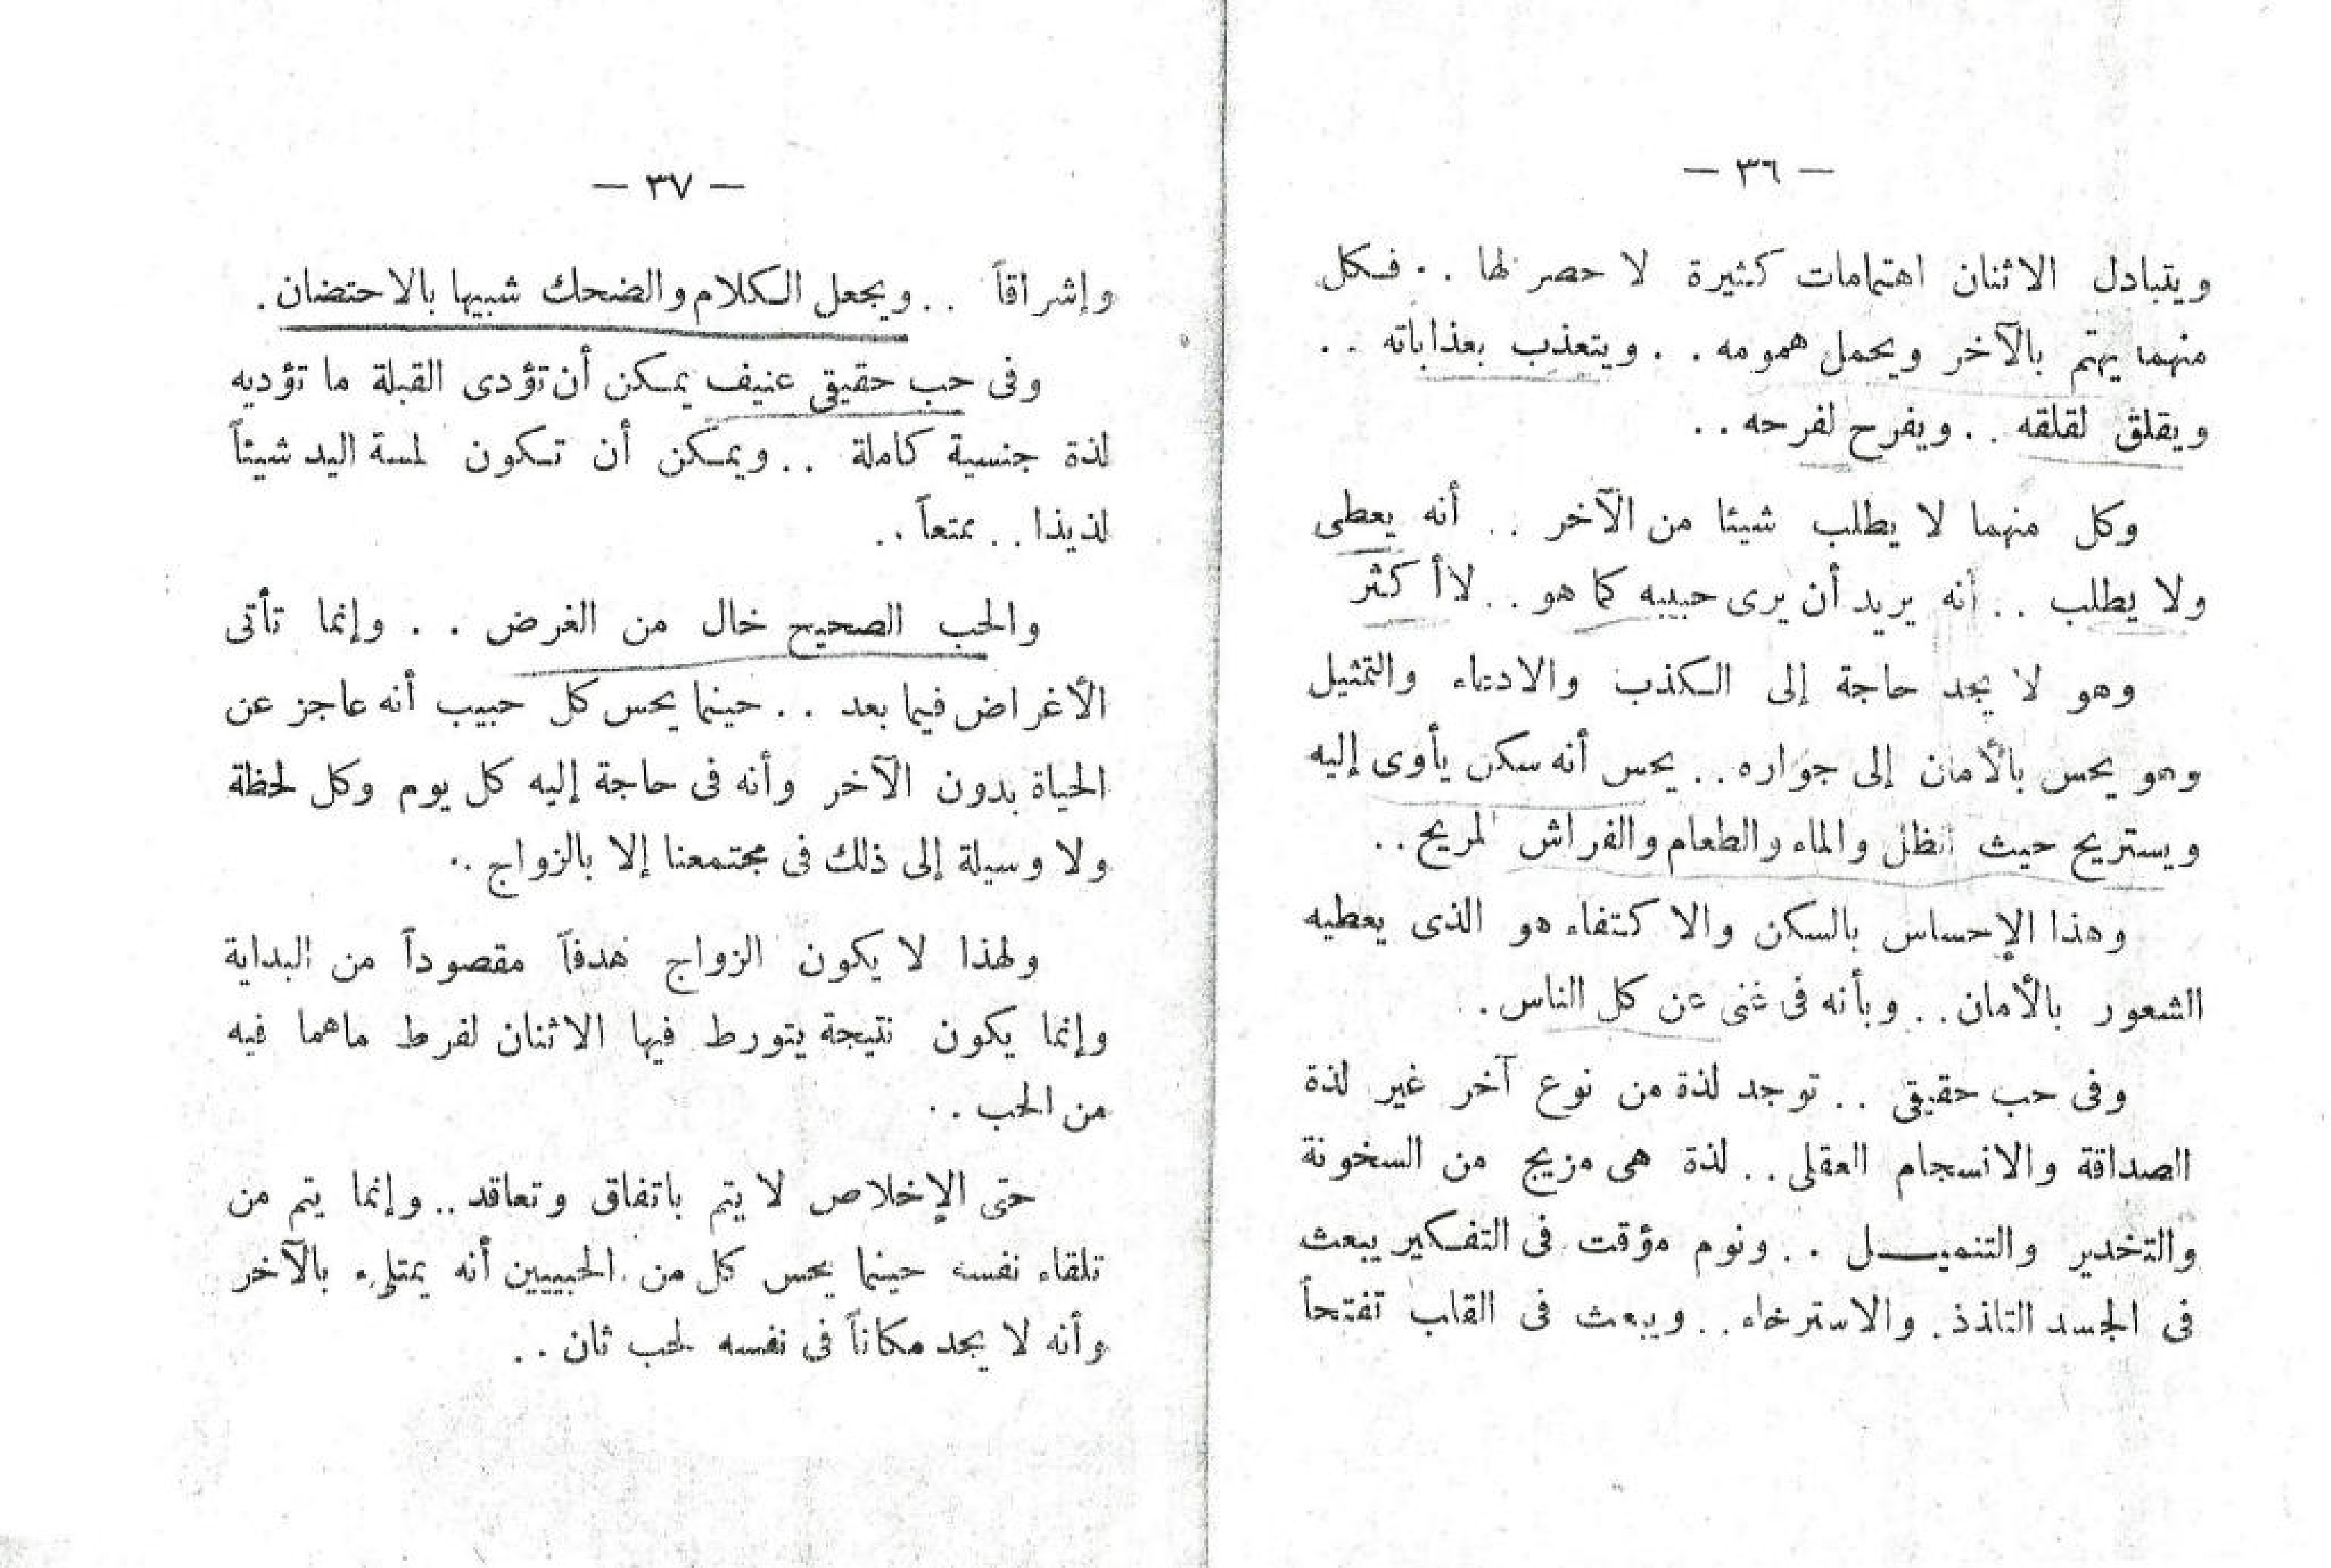 — ٣٦ —
ويتبادل الاثنان اهتمامات كثيرة لا حصر لها .. فكل
منهما يهتم بالآخر ويحمل همومه .. ويتعذب بعذاباته ..
ويقلق لقلقه .. ويفرح لفرحه ..
وكل منهما لا يطلب شيئا من الآخر .. أنه يعطى
ولا يطلب .. أنه يريد أن يرى حبيبه كما هو .. لا أكثر
وهو لا يجد حاجة إلى الكذب والادعاء والتمثيل
وهو يحس بالأمان إلى جواره .. يحس أنه سكن يأوى إليه
ويستريح حيث الظل والماء والطعام والفراش المريح ..
وهذا الإحساس بالسكن والاكتفاء هو الذى يعطيه
الشعور بالأمان .. وبأنه فى غنى عن كل الناس .
وفى حب حقيقى .. توجد لذة من نوع آخر غير لذة
الصداقة والانسجام العقلى .. لذة هى مزيج من السخونة
والتخدير والتنميـــل .. ونوم مؤقت فى التفكير يبعث
فى الجسد التلذذ . والاسترخاء .. ويبعث فى القلب تفتحاً
— ٣٧ —
وإشراقاً .. ويجعل الكلام والضحك شبيها بالاحتضان .
وفى حب حقيقى عنيف يمكن أن تؤدى القبلة ما تؤديه
لذة جنسية كاملة .. ويمكن أن تكون لمسة اليد شيئاً
لذيذا .. ممتعاً ..
والحب الصحيح خال من الغرض .. وإنما تأتى
الأغراض فيما بعد .. حينما يحس كل حبيب أنه عاجز عن
الحياة بدون الآخر وأنه فى حاجة إليه كل يوم وكل لحظة
ولا وسيلة إلى ذلك فى مجتمعنا إلا بالزواج ..
ولهذا لا يكون الزواج هدفاً مقصوداً من البداية
وإنما يكون نتيجة يتورط فيها الاثنان لفرط ماهما فيه
من الحب ..
حتى الإخلاص لا يتم باتفاق وتعاقد .. وإنما يتم من
تلقاء نفسه حينما يحس كل من الحبيبين أنه يمتلىء بالآخر
وأنه لا يجد مكاناً فى نفسه لحب ثان ..